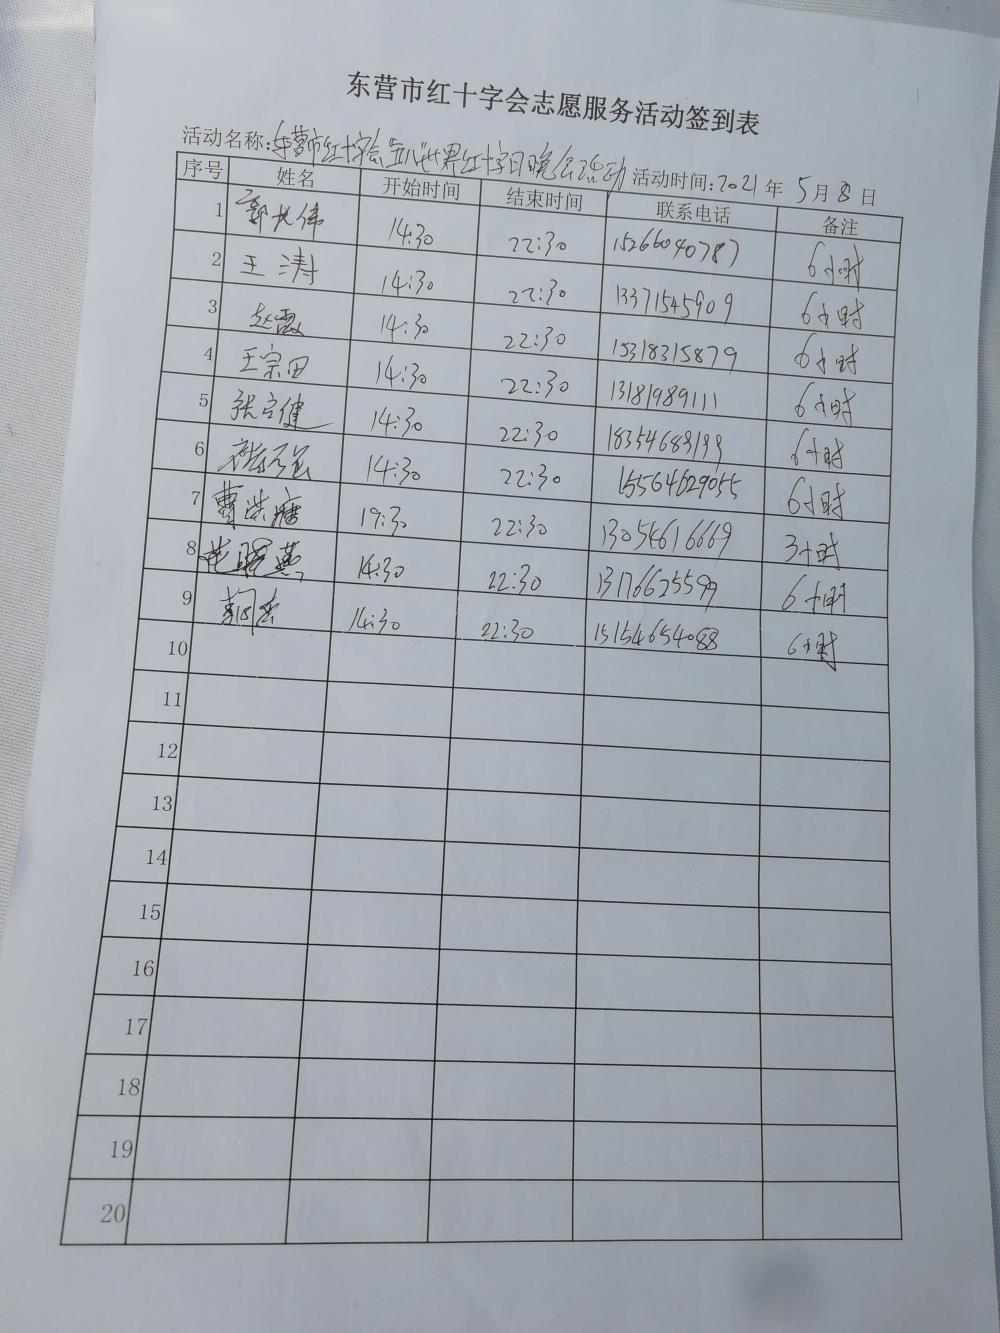 东营市红十字会志愿服务活动签到表
活动名称:东营市红十字会五八世界红十字日晚会活动 活动时间:2021年 5月8日
序号 姓名 开始时间 结束时间 联系电话 备注
1 郭长伟 14:30 22:30 15266040787 6小时
2 王涛 14:30 22:30 13371545909 6小时
3 赵霞 14:30 22:30 15318315879 6小时
4 王宗田 14:30 22:30 13181989111 6小时
5 14:30 22:30 6小时
6 14:30 22:30 15564629055 6小时
7 曹洪 19:30 22:30 13054616669 3小时
8 14:30 22:30 6小时
9 14:30 22:30 15154654088 6小时
10
11
12
13
14
15
16
17
18
19
20